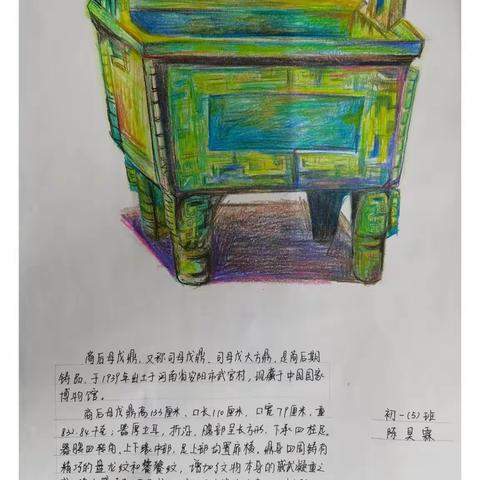 商后母戊鼎，又称司母戊鼎、司母戊大方鼎，是商后期
铸品，于1939年出土于河南省安阳市武官村，现藏于中国国家
博物馆。
商后母戊鼎高133厘米、口长110厘米、口宽79厘米，重
832.84千克；器厚立耳，折沿，腹部呈长方形，下承四柱足。
器腹四转角、上下缘中部、足上部均置扉棱。鼎身四周铸有
精巧的盘龙纹和饕餮纹，增加了文物本身的威武凝重之
初一(5)班
陈昊霖